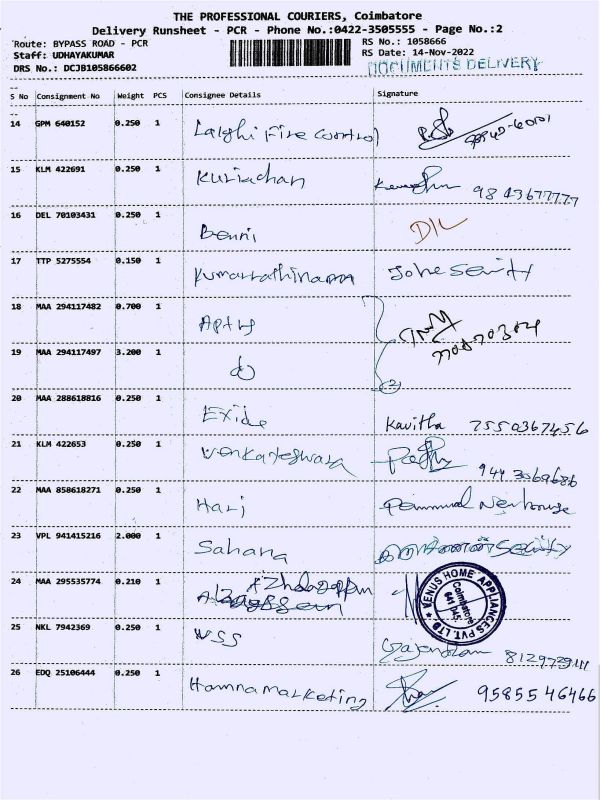 THE PROFESSIONAL COURIERS, Coimbatore
Delivery Runsheet - PCR - Phone No.:0422-3505555 - Page No.:2
Route: BYPASS ROAD - PCR
RS No.: 1058666
Staff: UDHAYAKUMAR
RS Date: 14-Nov-2022
DRS No.: DCJB105866602
DOCUMENTS DELIVERY
S No Consignment No Weight PCS Consignee Details Signature
14 GPM 640152 0.250 1 Lalghi Fire Control
15 KLM 422691 0.250 1 Kuriachan 98 43677777
16 DEL 70103431 0.250 1 Benni D/L
17 TTP 5275554 0.150 1
18 MAA 294117482 0.700 1
19 MAA 294117497 3.200 1 do
20 MAA 288618816 0.250 1 Exide Kavitha 7550367456
21 KLM 422653 0.250 1 Venkateswara 944 3069686
22 MAA 858618271 0.250 1 Hari
23 VPL 941415216 2.000 1 Sahana
24 MAA 295535774 0.210 1
VENUS HOME APPLIANCES PVT. LTD.
Coimbatore
641 045.
25 NKL 7942369 0.250 1 WSS
26 EDQ 25106444 0.250 1 Hamna marketing 9585546466